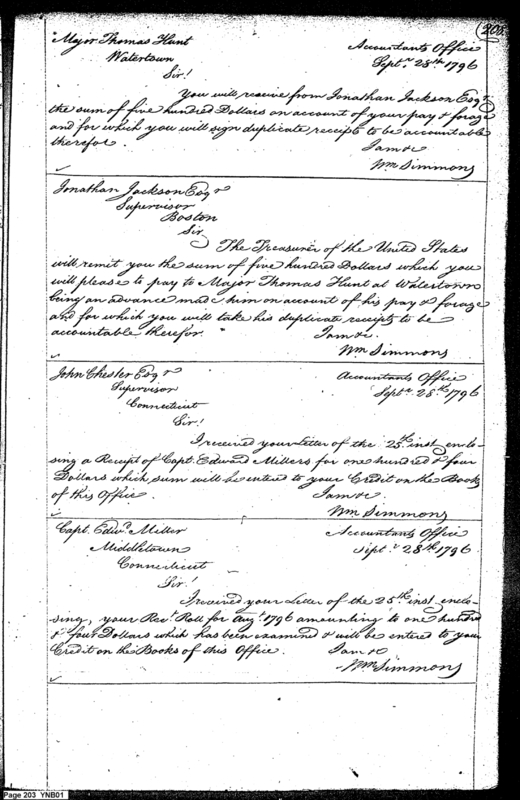 200.
Major Thomas Hunt
Watertown
Accountants Office
Septr. 28th 1796
Sir!
You will receive from Jonathan Jackson Esqr
the sum of five hundred Dollars on account of your pay & forage
and for which you will sign duplicate receipts to be accountable
therefor.
I am &c
Wm Simmons
Jonathan Jackson Esqr
Supervisor
Boston
Sir
The Treasurer of the United States
will remit you the sum of five hundred Dollars which you
will please to pay to Major Thomas Hunt at Watertown
being an advance made him on account of his pay & forage
and for which you will take his duplicate receipts to be
accountable therefor. I am &c.
Wm Simmons
John Chester Esqr
Supervisor
Connecticut
Accountants Office
Septr. 28th 1796
Sir!
I received your Letter of the 25th inst enclo-
sing a Receipt of Capt. Edward Millers for one hundred & four
Dollars which sum will be entered to your Credit on the Books
of this Office
I am &c.
Wm Simmons
Capt. Edwd. Miller
Middletown
Connecticut
Accountants Office
Septr. 28th 1796
Sir!
I received your Letter of the 25th inst enclo-
sing, your Rect. Roll for Augt. 1796 amounting to one hundred
& four Dollars which has been examined & will be entered to your
Credit on the Books of this Office. I am &c
Wm Simmons
Page 203 YNB01